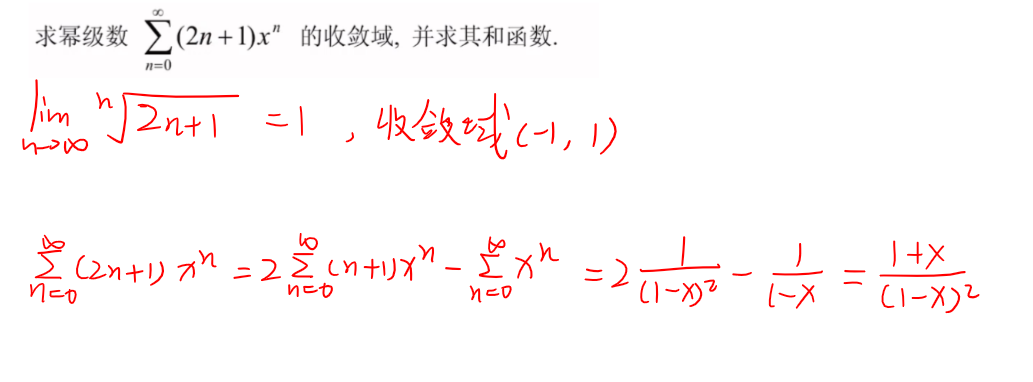 求幂级数 $\sum_{n=0}^{\infty}(2n+1)x^n$ 的收敛域, 并求其和函数.
$\lim_{n\to\infty}\sqrt[n]{2n+1}=1$ , 收敛域(-1, 1)
$\sum_{n=0}^{\infty}(2n+1)x^n=2\sum_{n=0}^{\infty}(n+1)x^n-\sum_{n=0}^{\infty}x^n=2\frac{1}{(1-x)^2}-\frac{1}{1-x}=\frac{1+x}{(1-x)^2}$